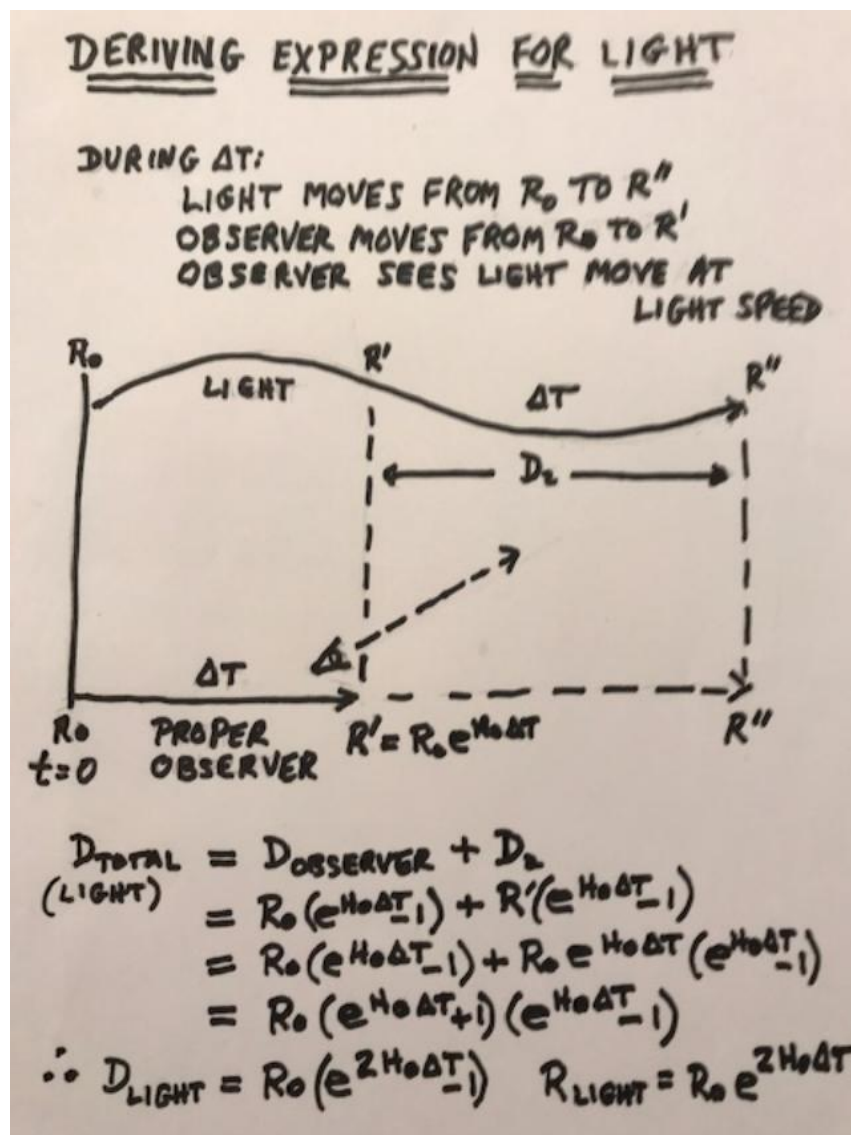 DERIVING EXPRESSION FOR LIGHT
DURING ΔT:
LIGHT MOVES FROM R₀ TO R"
OBSERVER MOVES FROM R₀ TO R'
OBSERVER SEES LIGHT MOVE AT
LIGHT SPEED
R₀ R' R"
LIGHT ΔT
D₂
ΔT
R₀ PROPER R' = R₀e^{H₀ΔT} R"
t=0 OBSERVER
D_TOTAL = D_OBSERVER + D₂
(LIGHT)
= R₀(e^{H₀ΔT}-1) + R'(e^{H₀ΔT}-1)
= R₀(e^{H₀ΔT}-1) + R₀e^{H₀ΔT}(e^{H₀ΔT}-1)
= R₀(e^{H₀ΔT}+1)(e^{H₀ΔT}-1)
∴ D_LIGHT = R₀(e^{2H₀ΔT}-1) R_LIGHT = R₀e^{2H₀ΔT}